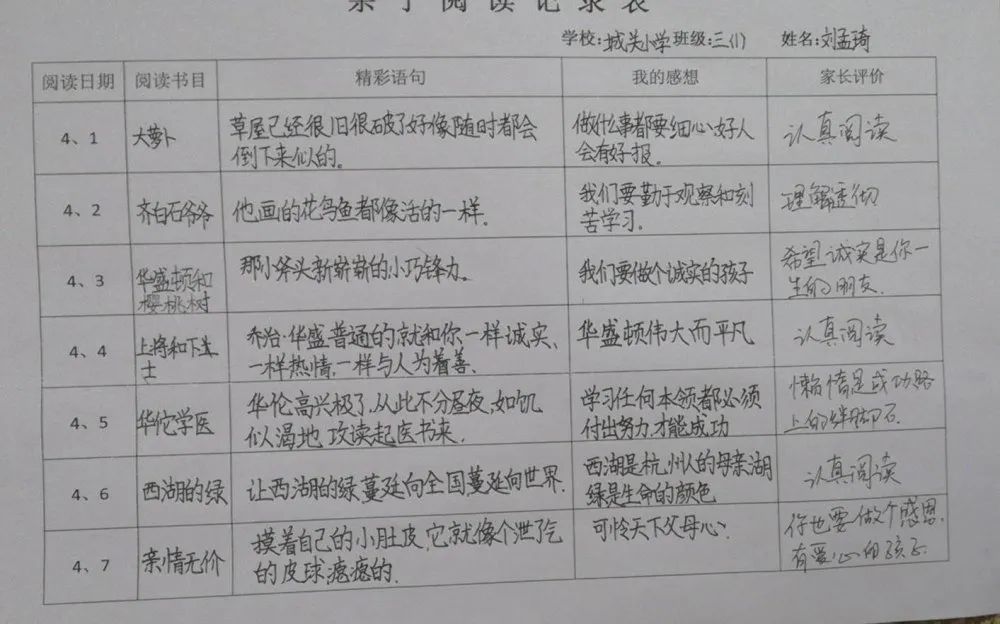 亲子阅读记录表
学校:城关小学 班级:三(1) 姓名:刘孟琦
阅读日期 阅读书目 精彩语句 我的感想 家长评价
4、1
大萝卜
草屋已经很旧很破了好像随时都会
倒下来似的。
做什么事都要细心,好人
会有好报.
认真阅读
4、2
齐白石爷爷
他画的花鸟鱼都像活的一样.
我们要勤于观察和刻
苦学习.
理解透彻
4、3
华盛顿和
樱桃树
那小斧头新崭崭的小巧锋力。
我们要做个诚实的孩子
希望诚实是你一
生的朋友.
4、4
上将和下
士
乔治·华盛普通的就和你一样诚实、
一样热情.一样与人为着善.
华盛顿伟大而平凡
认真阅读
4、5
华佗学医
华佗高兴极了,从此不分昼夜,如饥
似渴地,攻读起医书来.
学习任何本领都必须
付出努力,才能成功
懒惰是成功路
上的绊脚石.
4、6
西湖的绿
让西湖的绿,蔓延向全国蔓延向世界.
西湖是杭州人的母亲湖
绿是生命的颜色
认真阅读
4、7
亲情无价
摸着自己的小肚皮,它就像个泄了气
的皮球瘪瘪的.
可怜天下父母心.
你也要做个感恩.
有爱心的孩子.